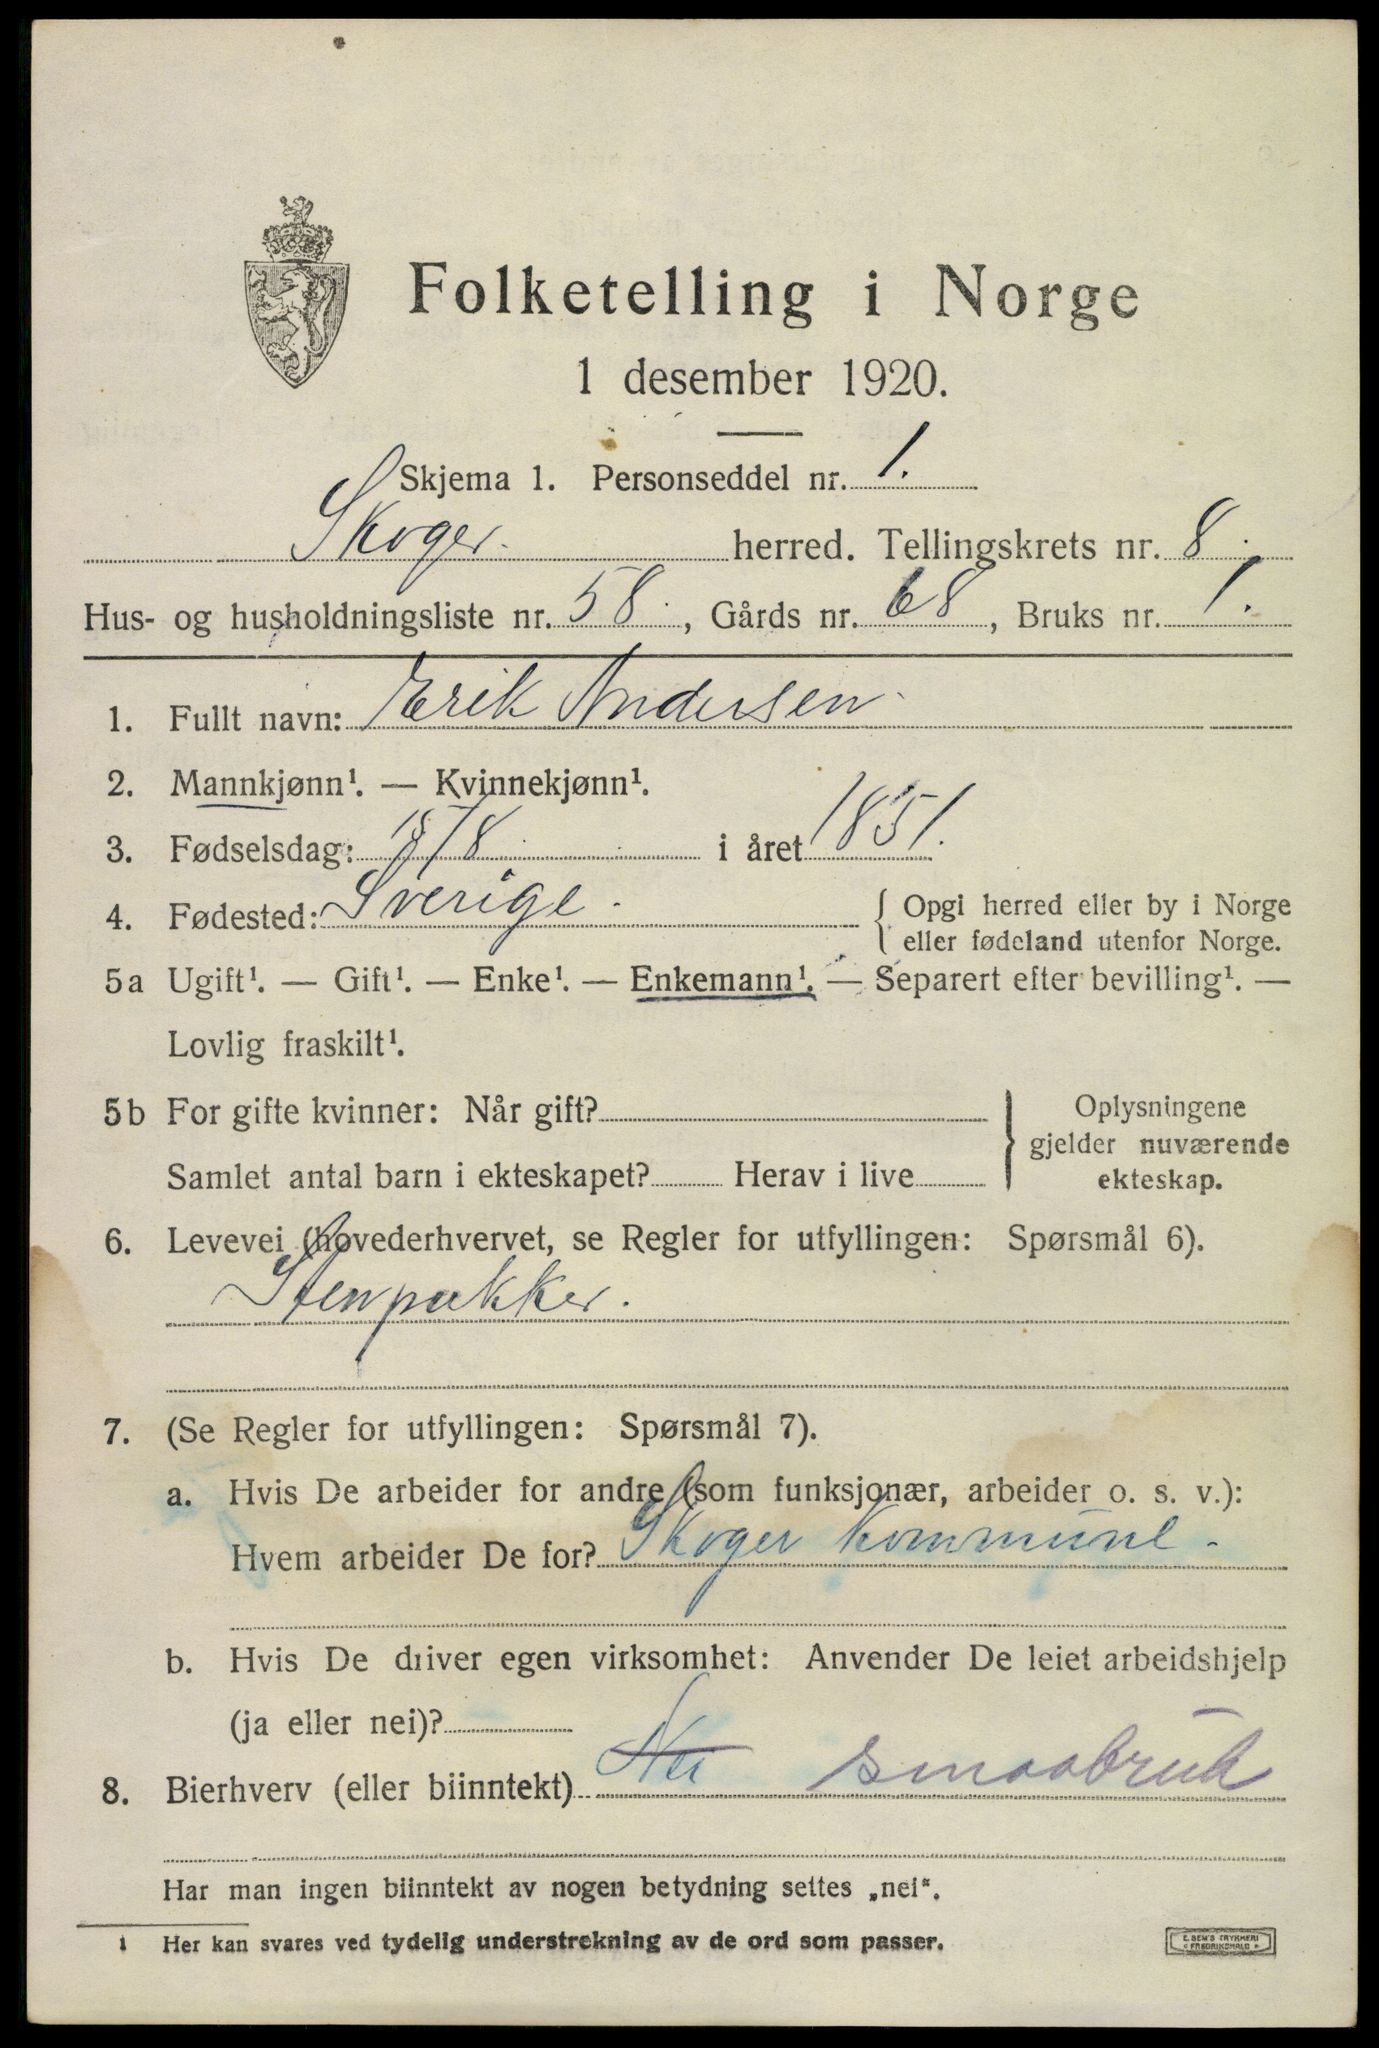 Folketelling i Norge
1 desember 1920.
Skjema 1. Personseddel nr. 1.
Skoger. herred. Tellingskrets nr. 8.
Hus- og husholdningsliste nr. 58., Gårds nr. 68, Bruks nr. 1.
1. Fullt navn: Erik Andersen
2. Mannkjønn¹. — Kvinnekjønn¹.
3. Fødselsdag: /8 i året 1851.
4. Fødested: Sverige. { Opgi herred eller by i Norge
eller fødeland utenfor Norge.
5a Ugift¹. — Gift¹. — Enke¹. — Enkemann¹. — Separert efter bevilling¹. —
Lovlig fraskilt¹.
5b For gifte kvinner: Når gift? } Oplysningene
gjelder nuværende
Samlet antal barn i ekteskapet? Herav i live
ekteskap.
6. Levevei (hovederhvervet, se Regler for utfyllingen: Spørsmål 6).
Stenpukker.
7. (Se Regler for utfyllingen: Spørsmål 7).
a. Hvis De arbeider for andre (som funksjonær, arbeider o. s. v.):
Hvem arbeider De for? Skoger Kommune.
b. Hvis De driver egen virksomhet: Anvender De leiet arbeidshjelp
(ja eller nei)?
8. Bierhverv (eller biinntekt) Nei smaabruk
Har man ingen biinntekt av nogen betydning settes „nei“.
1 Her kan svares ved tydelig understrekning av de ord som passer.
E. SEM'S TRYKKERI
FREDRIKSHALD